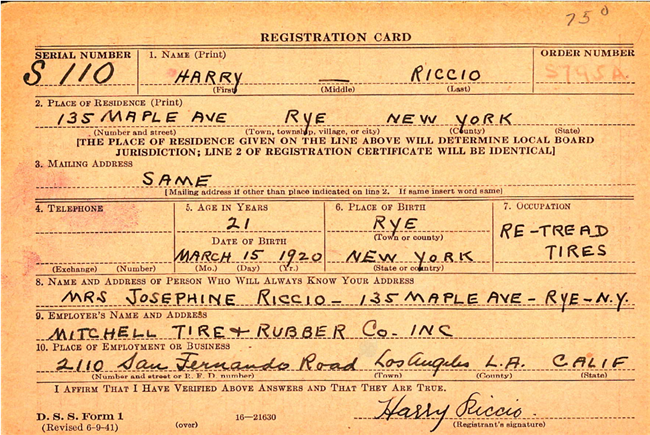 75⁰
REGISTRATION CARD
SERIAL NUMBER 1. NAME (Print) ORDER NUMBER
S 110 HARRY — RICCIO S795A
(First) (Middle) (Last)
2. PLACE OF RESIDENCE (Print)
135 MAPLE AVE RYE NEW YORK
(Number and street) (Town, township, village, or city) (County) (State)
[THE PLACE OF RESIDENCE GIVEN ON THE LINE ABOVE WILL DETERMINE LOCAL BOARD
JURISDICTION; LINE 2 OF REGISTRATION CERTIFICATE WILL BE IDENTICAL]
3. MAILING ADDRESS
SAME
[Mailing address if other than place indicated on line 2. If same insert word same]
4. TELEPHONE 5. AGE IN YEARS 6. PLACE OF BIRTH 7. OCCUPATION
21 RYE RE-TREAD
DATE OF BIRTH (Town or county) TIRES
MARCH 15 1920 NEW YORK
(Exchange) (Number) (Mo.) (Day) (Yr.) (State or country)
8. NAME AND ADDRESS OF PERSON WHO WILL ALWAYS KNOW YOUR ADDRESS
MRS JOSEPHINE RICCIO - 135 MAPLE AVE - RYE - N.Y.
9. EMPLOYER'S NAME AND ADDRESS
MITCHELL TIRE & RUBBER CO. INC
10. PLACE OF EMPLOYMENT OR BUSINESS
2110 San Fernando Road Los Angeles L.A. CALIF
(Number and street or R. F. D. number) (Town) (County) (State)
I AFFIRM THAT I HAVE VERIFIED ABOVE ANSWERS AND THAT THEY ARE TRUE.
Harry Riccio.
D. S. S. Form 1 16—21630 (Registrant's signature)
(Revised 6-9-41) (over)